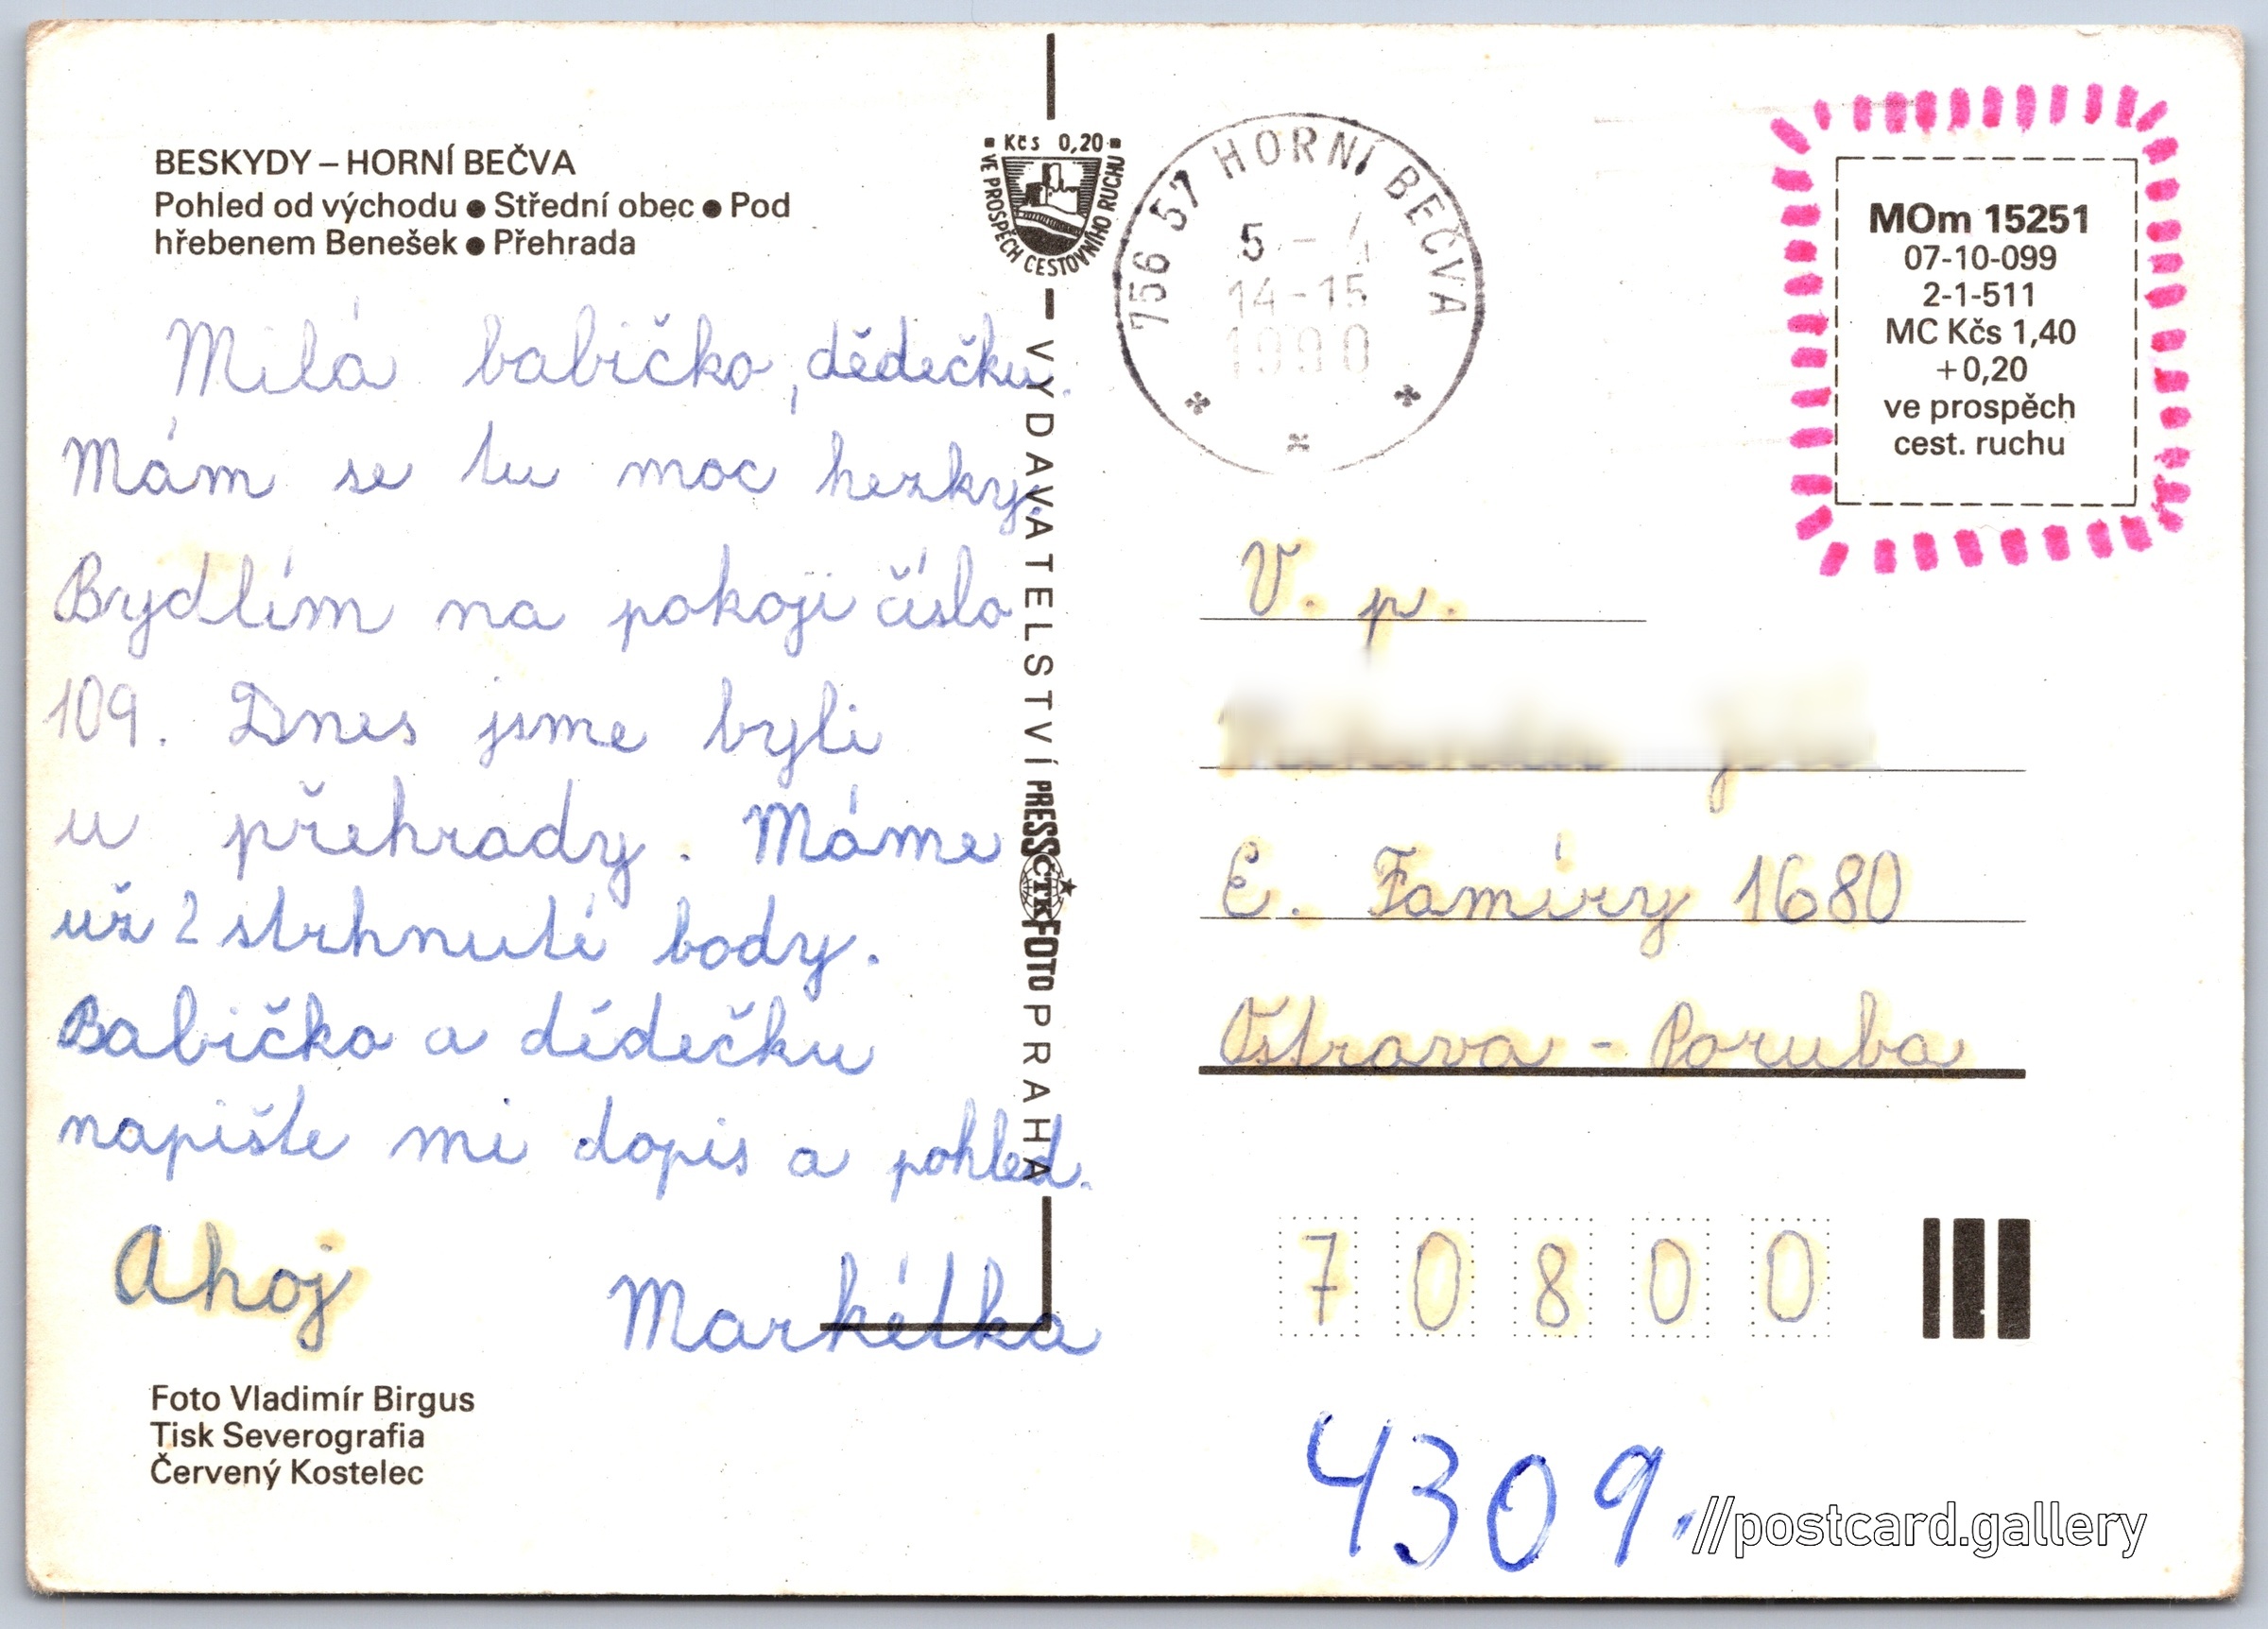 BESKYDY – HORNÍ BEČVA
Pohled od východu ● Střední obec ● Pod
hřebenem Benešek ● Přehrada
Milá babičko, dědečku.
Mám se tu moc hezky.
Brydlím na pokoji číslo
109. Dnes jsme byli
u přehrady. Máme
už 2 strhnuté body.
Babičko a dědečku
napište mi dopis a pohled.
Ahoj Markétka
Foto Vladimír Birgus
Tisk Severografia
Červený Kostelec
Kčs 0,20
VE PROSPĚCH CESTOVNÍHO RUCHU
VYDAVATELSTVÍ PRESSFOTO PRAHA
ČTK
756 57 HORNÍ BEČVA
5 - 4
14-15
1990
MOm 15251
07-10-099
2-1-511
MC Kčs 1,40
+0,20
ve prospěch
cest. ruchu
V. p.
E. Famíry 1680
Ostrava - Poruba
70800
4309.
//postcard.gallery